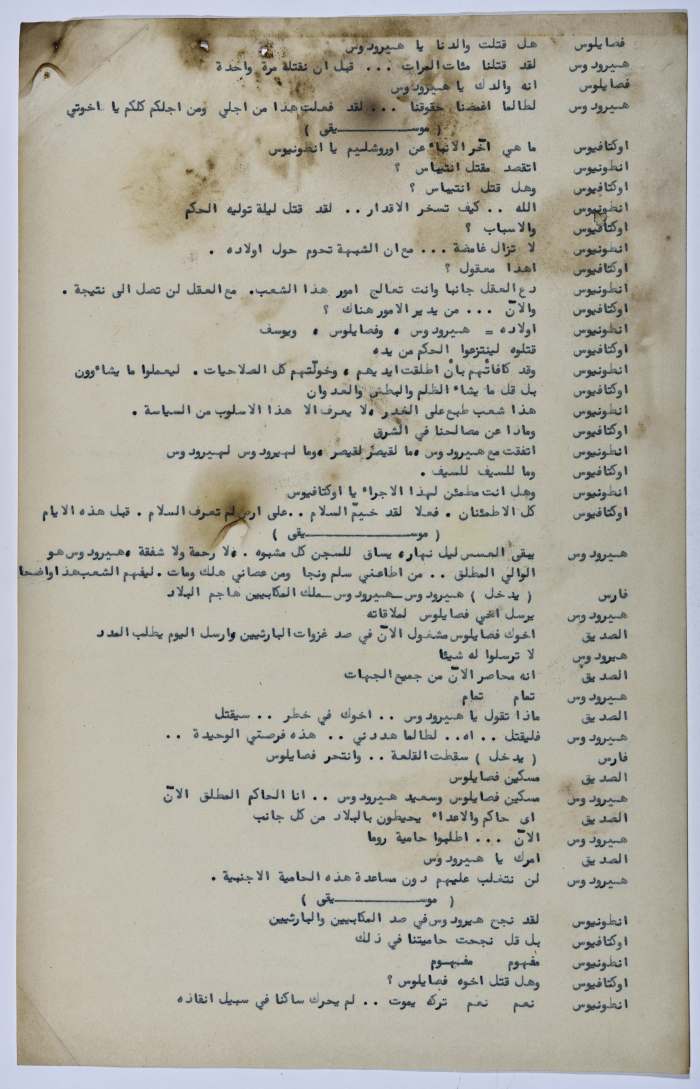 فصايلوس هل قتلت والدنا يا هيرودوس
هيرودوس لقد قتلنا مئات المرات ... قبل ان نقتله مرة واحدة
فصايلوس انه والدك يا هيرودوس
هيرودوس لطالما اغمضنا حقوقنا ... لقد فعلت هذا من اجلي ومن اجلكم كلكم يا اخوتي
( موســــيقى )
اوكتافيوس ما هي آخر الانباء عن اوروشليم يا انطونيوس
انطونيوس اتقصد مقتل انتيباس ؟
اوكتافيوس وهل قتل انتيباس ؟
انطونيوس الله .. كيف تسخر الاقدار .. لقد قتل ليلة توليه الحكم
اوكتافيوس والاسباب ؟
انطونيوس لا تزال غامضة ... مع ان الشبهة تحوم حول اولاده .
اوكتافيوس اهذا معقول ؟
انطونيوس دع العقل جانبا وانت تعالج امور هذا الشعب. مع العقل لن تصل الى نتيجة .
اوكتافيوس والآن ... من يدير الامور هناك ؟
انطونيوس اولاده = هيرودوس ، وفصايلوس ، ويوسف
اوكتافيوس قتلوه لينتزعوا الحكم من يده
انطونيوس وقد كافأتهم بأن اطلقت ايديهم ، وخولّتهم كل الصلاحيات . ليعملوا ما يشاءوون
اوكتافيوس بل قل ما يشاء الظلم والبطش والعدوان
انطونيوس هذا شعب طبع على الغدر ،لا يعرف الا هذا الاسلوب من السياسة .
اوكتافيوس وماذا عن مصالحنا في الشرق
انطونيوس اتفقت مع هيرودوس ،ما لقيصر لقيصر ،وما لهيرودوس لهيرودوس
اوكتافيوس وما للسيف للسيف .
انطونيوس وهل انت مطمئن لهذا الاجراء يا اوكتافيوس
اوكتافيوس كل الاطمئنان . فعلا لقد خيّم السلام ..على ارض لم تعرف السلام . قبل هذه الايام
( موســــيقى )
هيرودوس يبقى العسس ليل نهار، يساق للسجن كل مشبوه . ،لا رحمة ولا شفقة ،هيرودوس هو
الوالي المطلق .. من اطاعني سلم ونجا ومن عصاني هلك ومات . ليفهم الشعب هذا واضحا
فارس ( يدخل ) هيرودوس _ هيرودوس _ ملك المكابيين هاجم البلاد
هيرودوس يرسل اخي فصايلوس لملاقاته
الصديق اخوك فصايلوس مشغول الآن في صد غزوات البارثيين وارسل اليوم يطلب المدد
هيرودوس لا ترسلوا له شيئا
الصديق انه محاصر الآن من جميع الجهات
هيرودوس تمام تمام
الصديق ماذا تقول يا هيرودوس .. اخوك في خطر .. سيقتل
هيرودوس فليقتل .. اه.. لطالما هددني .. هذه فرصتي الوحيدة ..
فارس ( يدخل ) سقطت القلعة .. وانتحر فصايلوس
الصديق مسكين فصايلوس
هيرودوس مسكين فصايلوس وسعيد هيرودوس .. انا الحاكم المطلق الآن
الصديق اى حاكم والاعداء يحيطون بالبلاد من كل جانب
هيرودوس الآن ... اطلبوا حامية روما
الصديق امرك يا هيرودوس
هيرودوس لن نتغلب عليهم دون مساعدة هذه الحامية الاجنبية .
( موســــيقى )
انطونيوس لقد نجح هيرودوس في صد المكابيين والبارثيين
اوكتافيوس بل قل نجحت حاميتنا في ذلك
انطونيوس مفهوم مفهوم
اوكتافيوس وهل قتل اخوه فصايلوس ؟
انطونيوس نعم نعم تركه يموت .. لم يحرك ساكنا في سبيل انقاذه